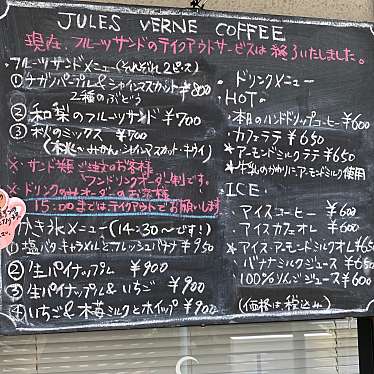 JULES VERNE COFFEE
現在、フルーツサンドのテイクアウトサービスは終了いたしました。
・フルーツサンドメニュー(それぞれ2ピース)
①ナガノパープル&シャインマスカット ¥800
2種のぶどう
②和梨のフルーツサンド ¥700
③秋のミックス ¥700
(和桃〜みかん・シャインマスカット・キウイ)
※サンド類ご注文のお客様
ワンドリンクオーダー制です。
※ドリンクのみオーダーのお客様
15:00まではテイクアウトでお願いします
かき氷メニュー(14:30〜です!)
①塩バタキャラメルとフレッシュバナナ ¥950
②生パイナップル ¥900
③生パイナップル&いちご ¥900
④いちご&木苺ミルクとホイップ ¥900
・ドリンクメニュー
HOT.
・本日のハンドドリップコーヒー ¥600
・カフェラテ ¥650
★アーモンドミルクラテ ¥650
★牛乳のかわりにアーモンドミルク使用
ICE.
・アイスコーヒー ¥600
・アイスカフェオレ ¥600
★アイス・アーモンドミルクオレ ¥650
・バナナミルクジュース ¥650
・100%りんごジュース ¥600
(価格は税込み)